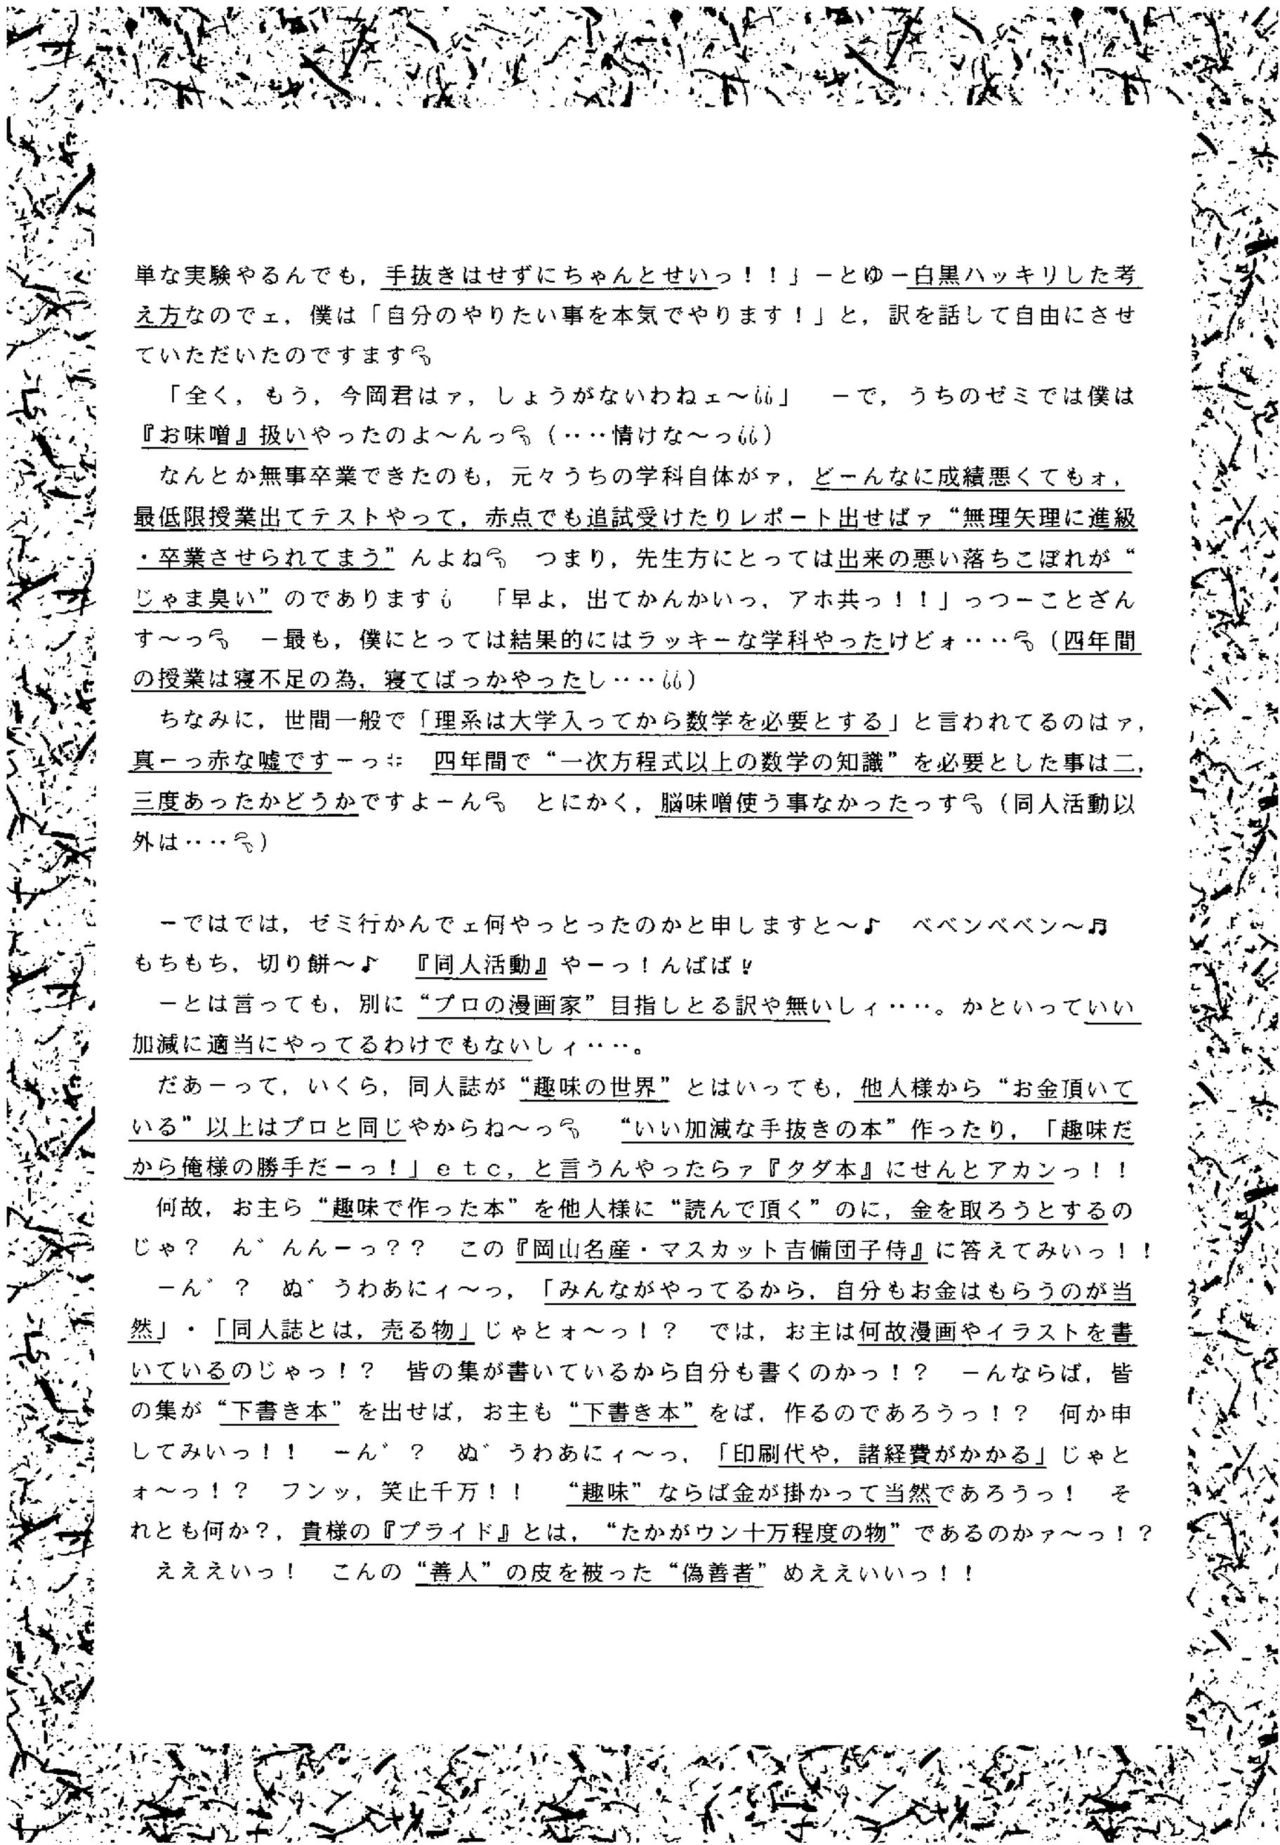 単な実験やるんでも，手抜きはせずにちゃんとせいっ！！」－とゆー白黒ハッキリした考
え方なのでェ，僕は「自分のやりたい事を本気でやります！」と，訳を話して自由にさせ
ていただいたのですます
「全く，もう，今岡君はァ，しょうがないわねェ～」　－で，うちのゼミでは僕は
『お味噌』扱いやったのよ～んっ（‥‥情けな～っ）
なんとか無事卒業できたのも，元々うちの学科自体がァ，どーんなに成績悪くてもォ，
最低限授業出てテストやって，赤点でも追試受けたりレポート出せばァ“無理矢理に進級
・卒業させられてまう”んよね　つまり，先生方にとっては出来の悪い落ちこぼれが“
じゃま臭い”のであります　「早よ，出てかんかいっ，アホ共っ！！」っつーことざん
す～っ　－最も，僕にとっては結果的にはラッキーな学科やったけどォ‥‥（四年間
の授業は寝不足の為，寝てばっかやったし‥‥）
ちなみに，世間一般で「理系は大学入ってから数学を必要とする」と言われてるのはァ，
真ーっ赤な嘘ですーっ　四年間で“一次方程式以上の数学の知識”を必要とした事は二，
三度あったかどうかですよーん　とにかく，脳味噌使う事なかったっす（同人活動以
外は‥‥）
－ではでは，ゼミ行かんでェ何やっとったのかと申しますと～♪　ベベンベベン～♬
もちもち，切り餅～♪　『同人活動』やーっ！んばば！！
－とは言っても，別に“プロの漫画家”目指しとる訳や無いしィ‥‥。かといっていい
加減に適当にやってるわけでもないしィ‥‥。
だあーって，いくら，同人誌が“趣味の世界”とはいっても，他人様から“お金頂いて
いる”以上はプロと同じやからね～っ　“いい加減な手抜きの本”作ったり，「趣味だ
から俺様の勝手だーっ！」ｅｔｃ，と言うんやったらァ『タダ本』にせんとアカンっ！！
何故，お主ら“趣味で作った本”を他人様に“読んで頂く”のに，金を取ろうとするの
じゃ？　ん゛んんーっ？？　この『岡山名産・マスカット吉備団子侍』に答えてみいっ！！
－ん゛？　ぬ゛うわあにィ～っ，「みんながやってるから，自分もお金はもらうのが当
然」・「同人誌とは，売る物」じゃとォ～っ！？　では，お主は何故漫画やイラストを書
いているのじゃっ！？　皆の集が書いているから自分も書くのかっ！？　－んならば，皆
の集が“下書き本”を出せば，お主も“下書き本”をば，作るのであろうっ！？　何か申
してみいっ！！　－ん゛？　ぬ゛うわあにィ～っ，「印刷代や，諸経費がかかる」じゃと
ォ～っ！？　フンッ，笑止千万！！　“趣味”ならば金が掛かって当然であろうっ！　そ
れとも何か？，貴様の『プライド』とは，“たかがウン十万程度の物”であるのかァ～っ！？
えええいっ！　こんの“善人”の皮を被った“偽善者”めええいいっ！！